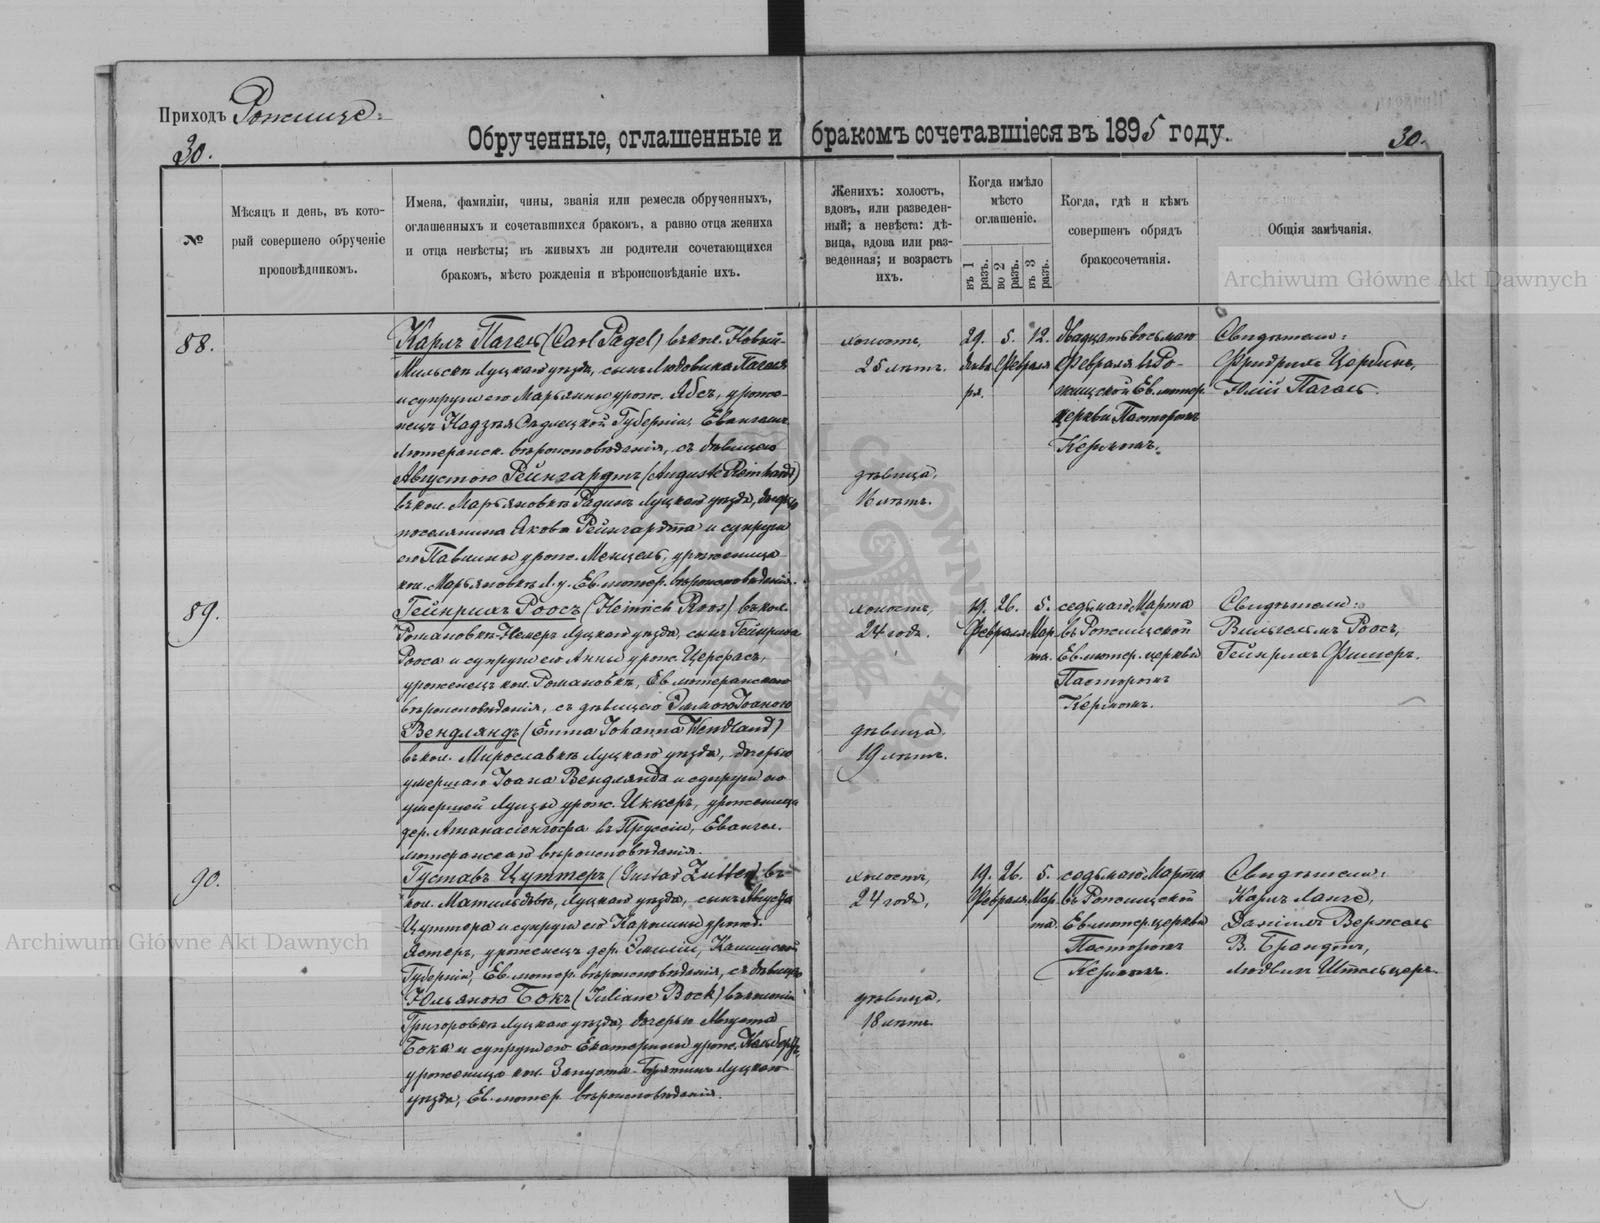 Приходъ Рожище
30.
Обрученные, оглашенные и бракомъ сочетавшіеся въ 1895 году.
30.
№
Мѣсяцъ и день, въ кото-
рый совершено обрученіе
проповѣдникомъ.
Имена, фамиліи, чины, званія или ремесла обрученныхъ,
оглашенныхъ и сочетавшихся бракомъ, а равно отца жениха
и отца невѣсты; въ живыхъ ли родители сочетающихся
бракомъ, мѣсто рожденія и вѣроисповѣданіе ихъ.
Женихъ: холостъ,
вдовъ, или разведен-
ный; а невѣста: дѣ-
вица, вдова или раз-
веденная; и возрастъ
ихъ.
Когда имѣло
мѣсто
оглашеніе.
въ 1 разъ.
во 2 разъ.
въ 3 разъ.
Когда, гдѣ и кѣмъ
совершенъ обрядъ
бракосочетанія.
Общія замѣчанія.
Archiwum Główne Akt Dawnych
88.
Карлъ Пагель (Carl Pagel) въ кол. Новый-
Мильскъ Луцкаго уѣзда, сынъ Людовика Пагеля
и супруги его Марьянны урож. Ябсъ, уроже-
нецъ Сѣдлецкой Губерніи, Евангел.
Лютеранск. вѣроисповѣданія, съ дѣвицею
Августою Рейнгардтъ (Auguste Reinhardt)
въ кол. Марьяновкѣ Луцкаго уѣзда, дочерью
поселянина Якова Рейнгардта и супруги
его Павлины урож. Менцель, уроженица
кол. Марьяновкѣ Л. у. Ев. лютер. вѣроисповѣданія.
холостъ,
25 лѣтъ.
дѣвица,
16 лѣтъ.
29. 5. 12.
Янва Февраля
ря.
двадцать восьмаго
Февраля въ Ро-
жищской Ев. лютер.
церкви Пасторомъ
Кермомъ.
Свидѣтели:
Фридрихъ Цербинъ,
Юлій Пагель.
89.
Гейнрихъ Роосъ (Heinrich Roos) въ кол.
Романовкѣ-Немеръ Луцкаго уѣзда, сынъ Гейнриха
Рооса и супруги его Анны урож. Церфасъ,
уроженецъ кол. Романовкѣ, Ев. лютеранскаго
вѣроисповѣданія, съ дѣвицею Эммою Іоаною
Вендляндъ (Emma Johanna Wendland)
въ кол. Мирославкѣ Луцкаго уѣзда, дочерью
умершаго Іоана Вендлянда и супруги его
умершей Луизы урож. Иккертъ, уроженица
дер. въ Пруссіи, Евангел.
лютеранскаго вѣроисповѣданія.
холостъ,
24 года.
дѣвица,
19 лѣтъ.
19. 26. 5.
Февраля Мар
та.
седьмаго Марта
въ Рожищской
Ев. лютер. церкви
Пасторомъ
Кермомъ.
Свидѣтели:
Вильгельмъ Роосъ,
Гейнрихъ Фишеръ.
90.
Густавъ Цуттеръ (Gustav Zutter) въ
кол. Матильдовѣ, Луцкаго уѣзда, сынъ Августа
Цуттера и супруги его Каролины урожд.
Ястеръ, уроженецъ дер. Эмиліи, Калишской
Губерніи, Ев. лютер. вѣроисповѣданія, съ дѣвицею
Юльяною Бокъ (Juliane Bock) въ колоніи
Григоровкѣ Луцкаго уѣзда, дочерью Августа
Бока и супруги его Екатерины урож.
уроженица кол. Запуста-Брятинъ Луцкаго
уѣзда, Ев. лютер. вѣроисповѣданія.
холостъ,
24 года,
дѣвица,
18 лѣтъ.
19. 26. 5.
Февраля Мар
та.
седьмаго Марта
въ Рожищской
Ев. лютер. церкви
Пасторомъ
Кермомъ.
Свидѣтели:
Карлъ Ланге,
Даніилъ Вержель
В. Брандтъ,
Людвигъ Штольцеръ.
Archiwum Główne Akt Dawnych